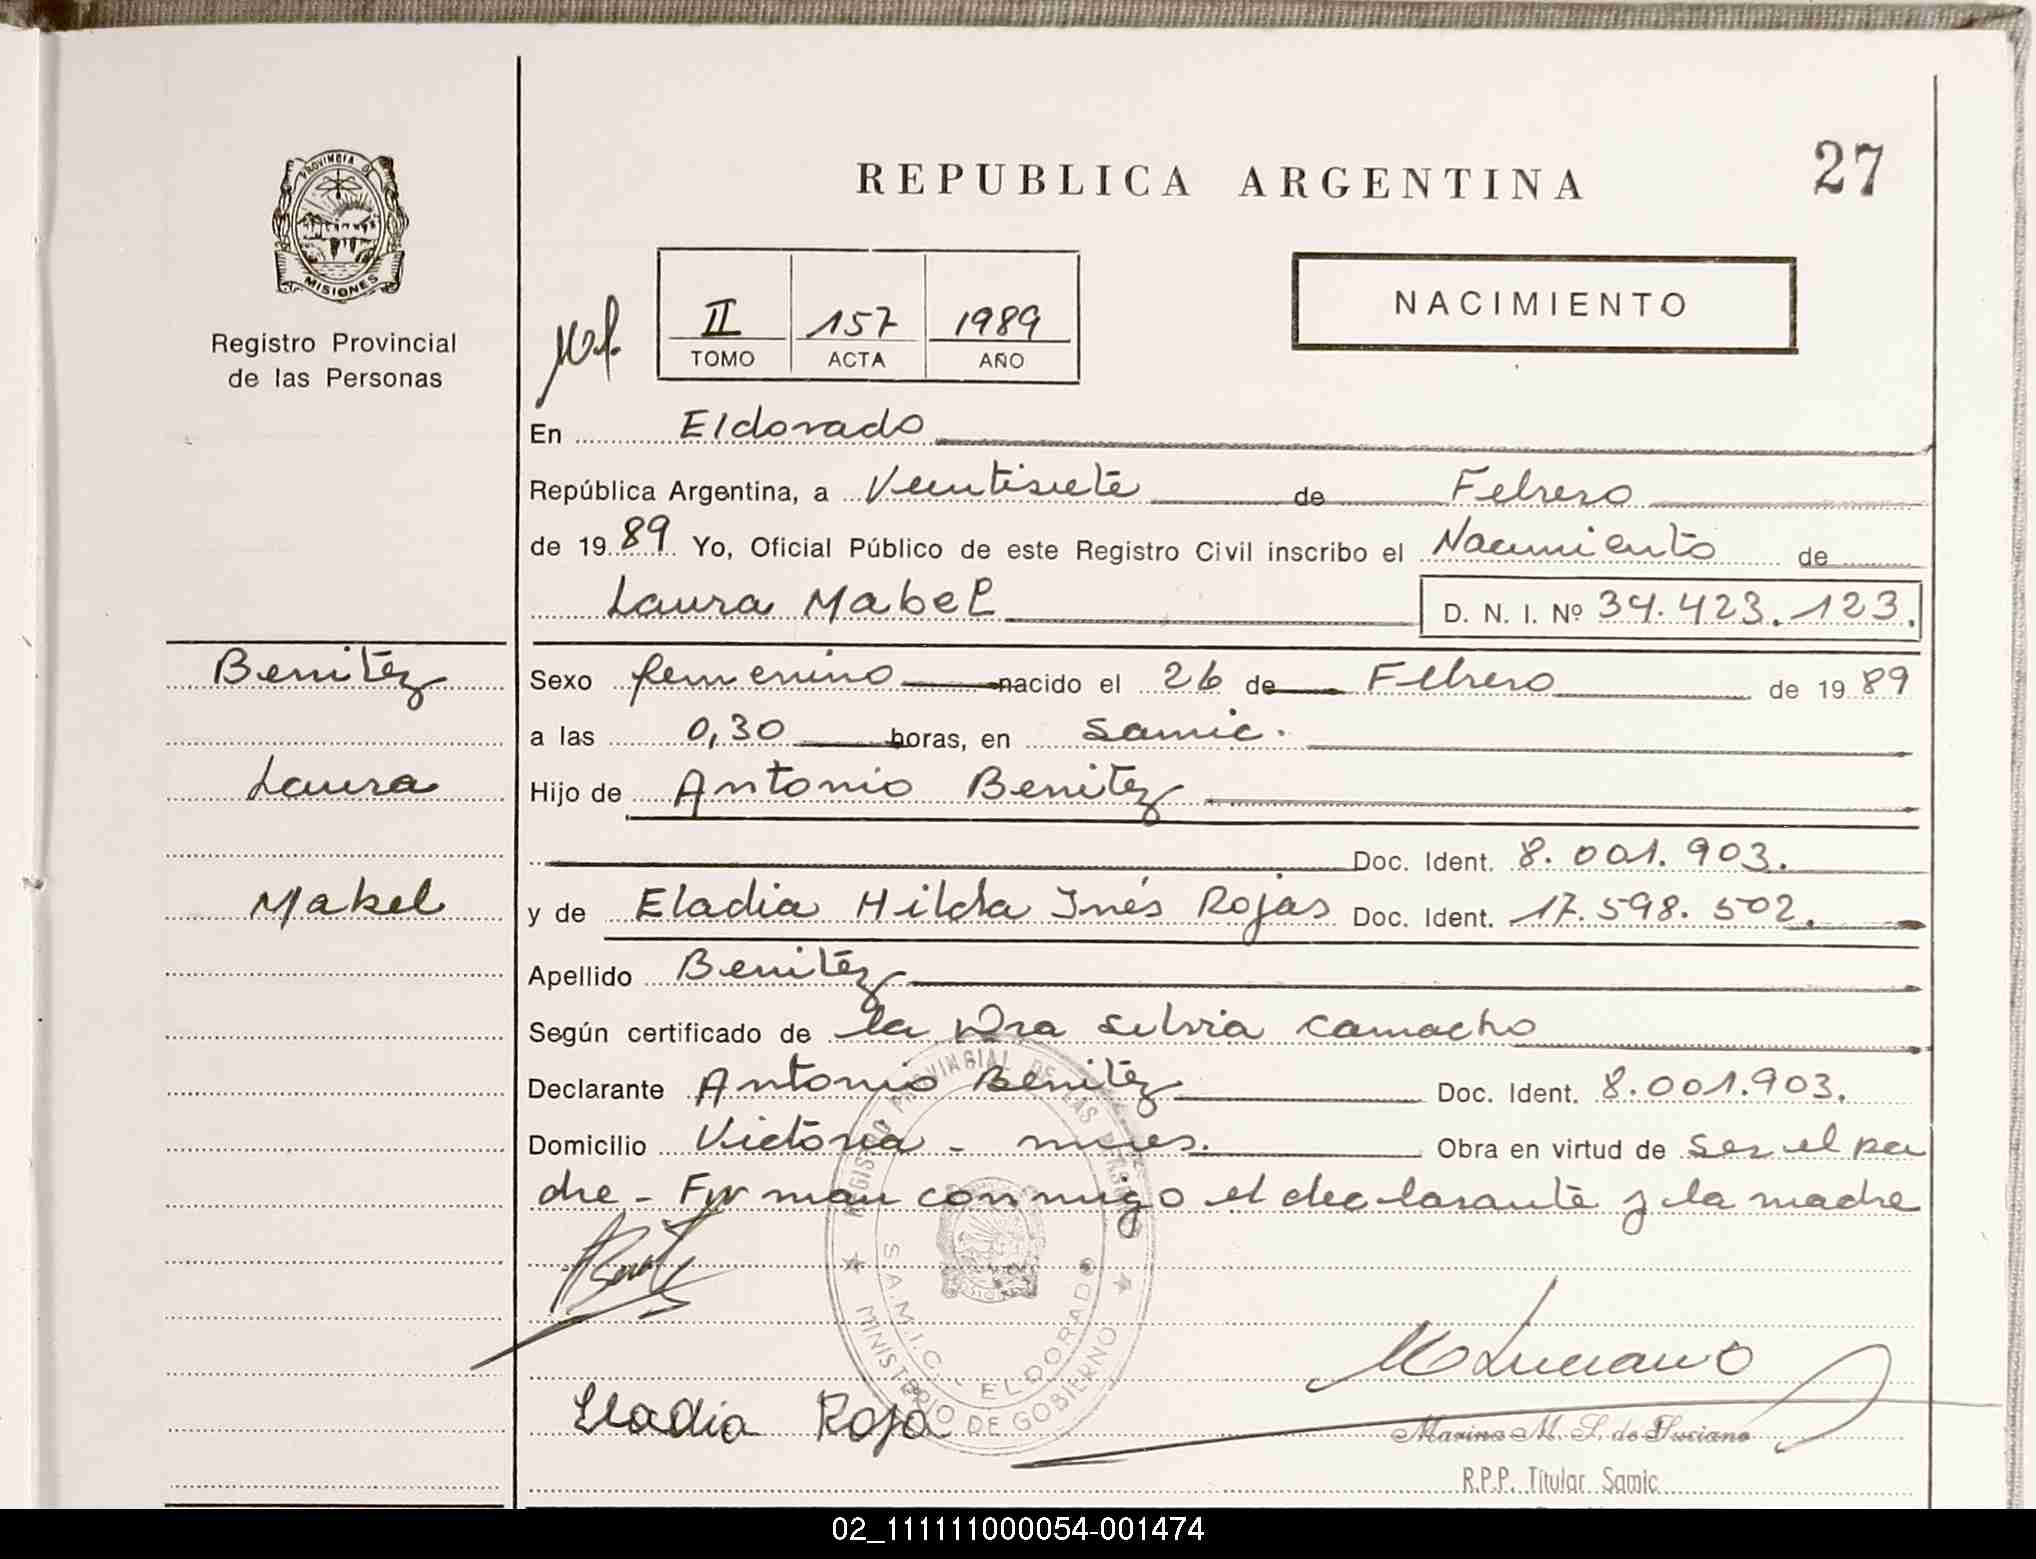 REPUBLICA ARGENTINA
27
PROVINCIA DE
MISIONES
Registro Provincial
de las Personas
II 157 1989
TOMO ACTA AÑO
NACIMIENTO
En Eldorado
República Argentina, a Veintisiete de Febrero
de 1989 Yo, Oficial Público de este Registro Civil inscribo el Nacimiento de
Laura Mabel D. N. I. Nº 34.423.123.
Benitez
Laura
Mabel
Sexo femenino nacido el 26 de Febrero de 1989
a las 0,30 horas, en Samic.
Hijo de Antonio Benitez
Doc. Ident. 8.001.903.
y de Eladia Hilda Inés Rojas Doc. Ident. 17.598.502.
Apellido Benitez
Según certificado de la Dra Silvia Camacho
Declarante Antonio Benitez Doc. Ident. 8.001.903.
Domicilio Victoria - mnes. Obra en virtud de ser el pa
dre - Firman conmigo el declarante y la madre
REGISTRO PROVINCIAL DE LAS PERSONAS
S.A.M.I.C. ELDORADO
MINISTERIO DE GOBIERNO
Eladia Roja
M Luciano
Marina M. S. de Luciano
R.P.P. Titular Samic
02_111111000054-001474